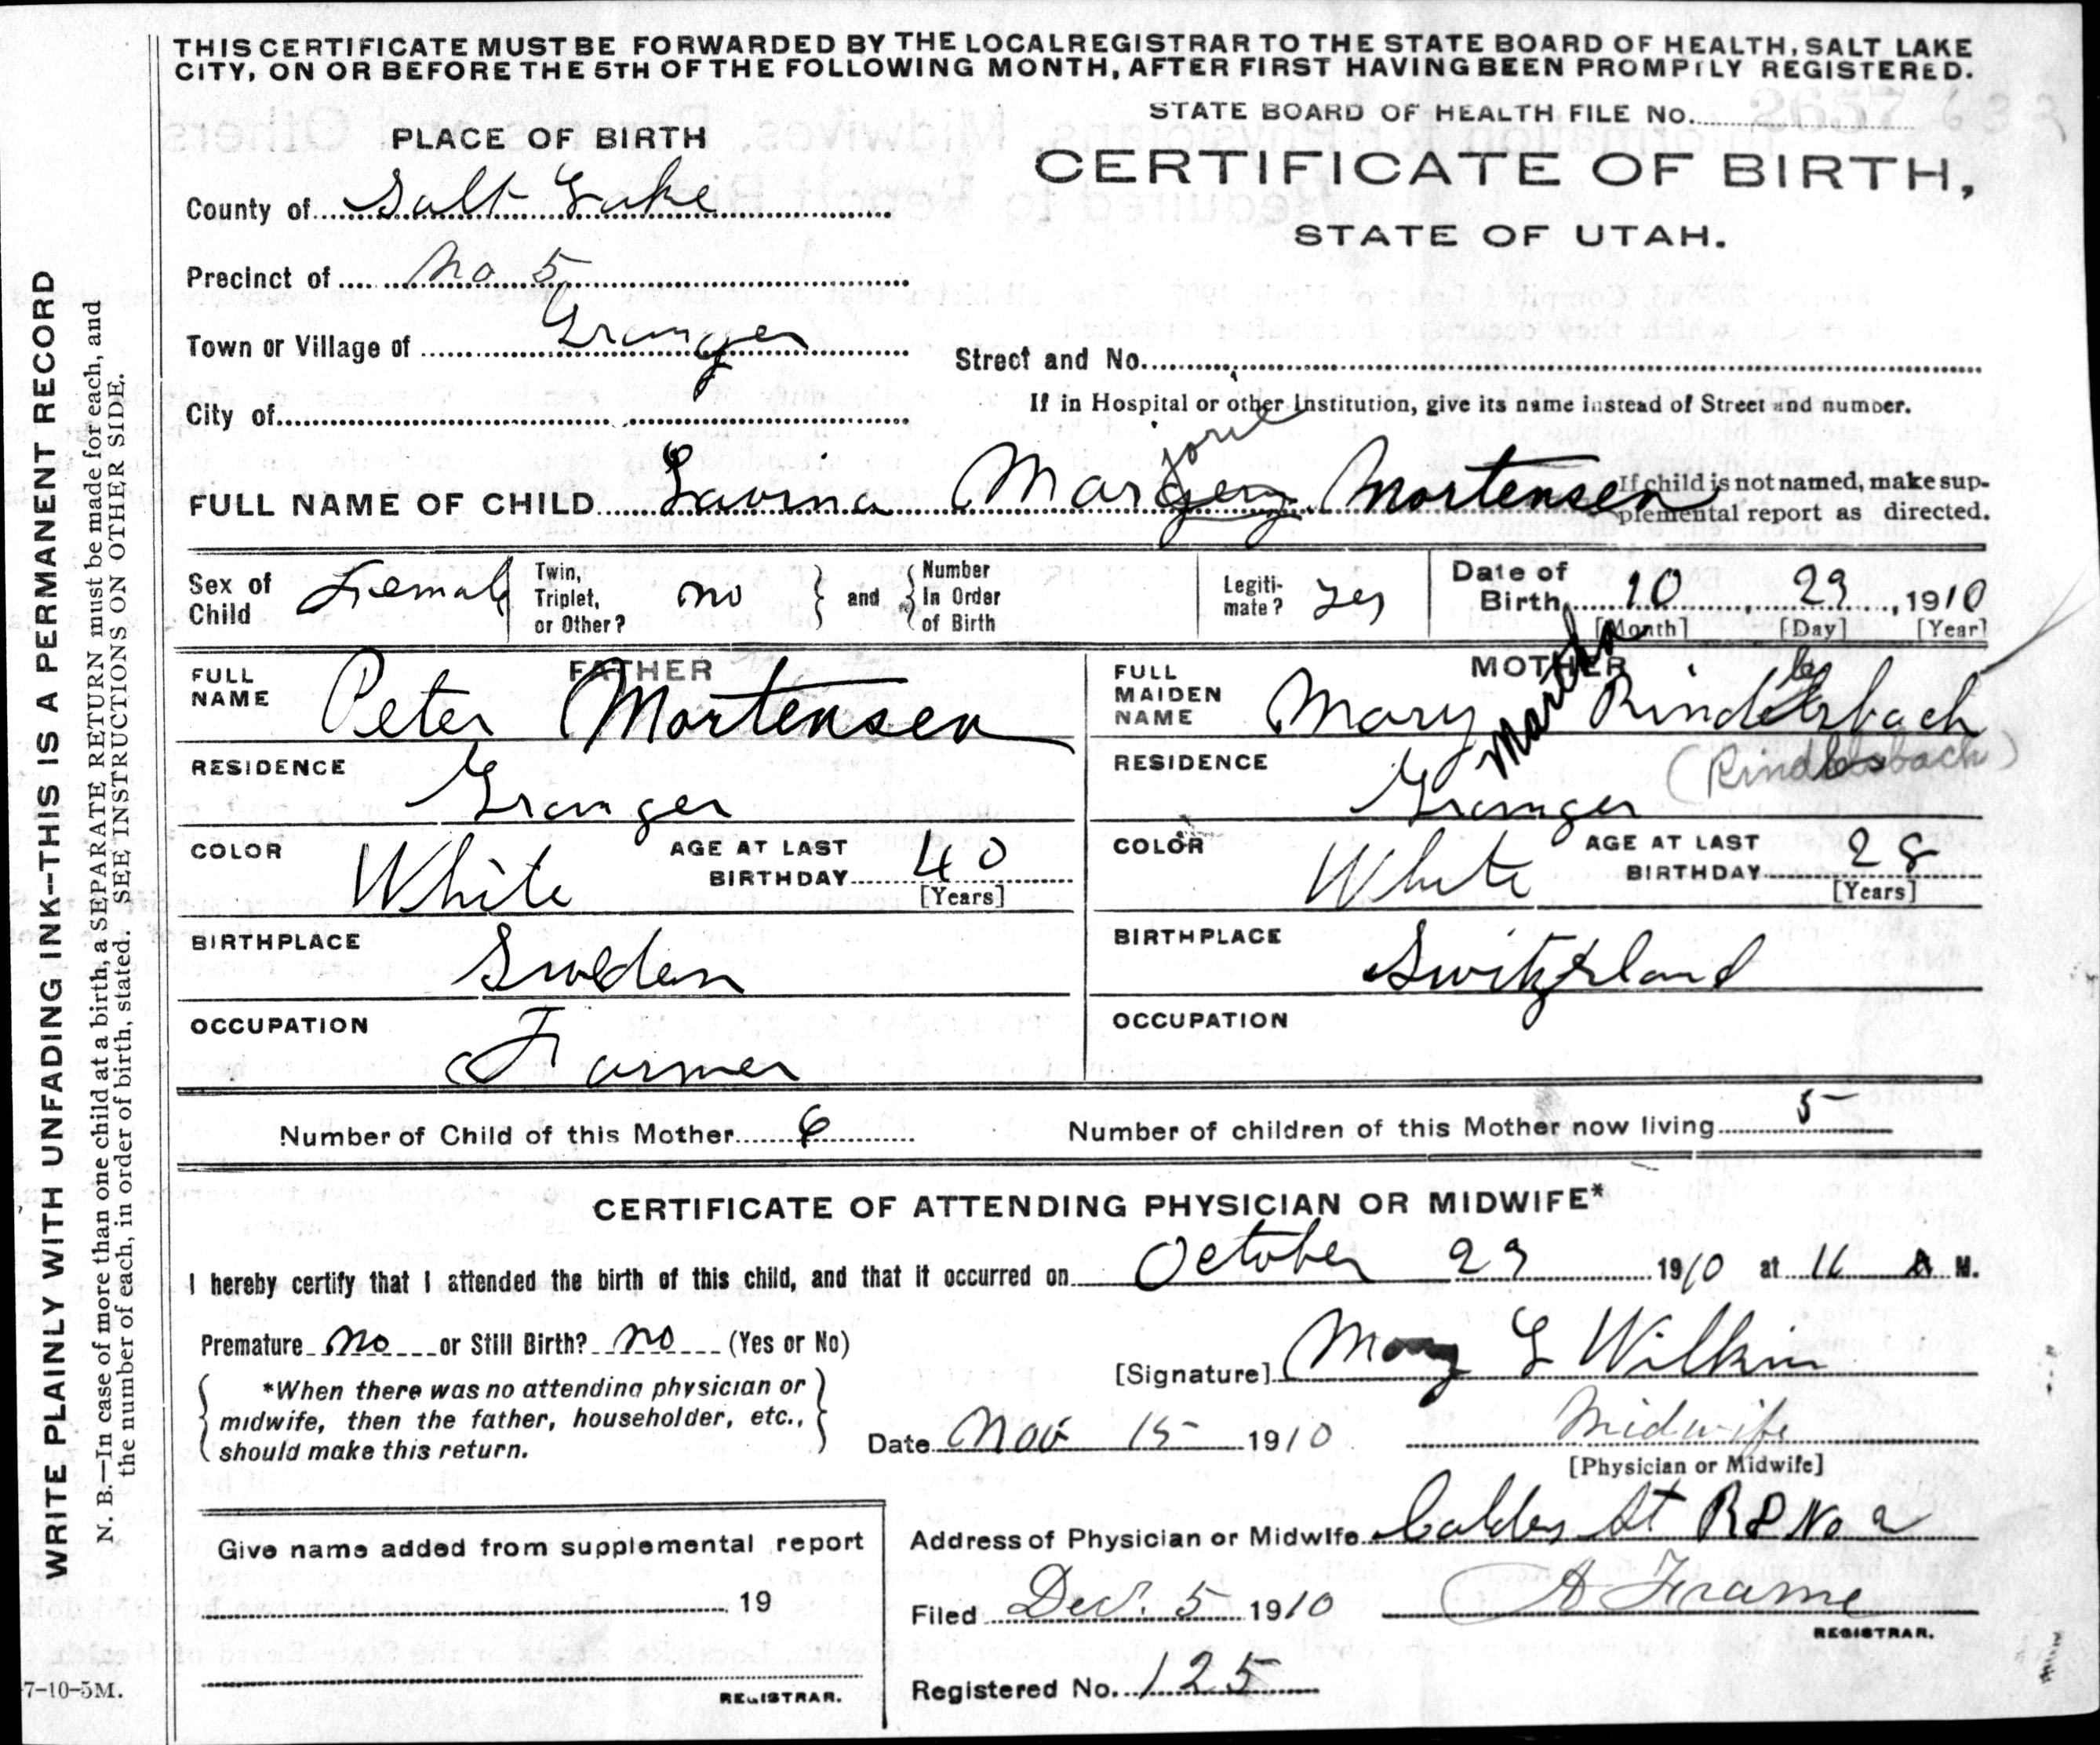 THIS CERTIFICATE MUST BE FORWARDED BY THE LOCAL REGISTRAR TO THE STATE BOARD OF HEALTH, SALT LAKE
CITY, ON OR BEFORE THE 5TH OF THE FOLLOWING MONTH, AFTER FIRST HAVING BEEN PROMPTLY REGISTERED.
STATE BOARD OF HEALTH FILE NO.
PLACE OF BIRTH
CERTIFICATE OF BIRTH,
STATE OF UTAH.
County of Salt Lake
Precinct of No 5
Town or Village of Granger
Street and No.
City of
If in Hospital or other Institution, give its name instead of Street and number.
jorie
FULL NAME OF CHILD Lavina Margery Mortensen
If child is not named, make sup-
plemental report as directed.
Sex of Child Female Twin, Triplet, or Other? no and Number In Order of Birth Legiti-mate? yes Date of Birth 10 29, 1910
[Month] [Day] [Year]
FATHER
MOTHER
FULL NAME Peter Mortensen
FULL MAIDEN NAME Mary Martha Rindlesbach
RESIDENCE Granger
RESIDENCE Granger
(Rindlesbach)
COLOR White AGE AT LAST BIRTHDAY 40 [Years]
COLOR White AGE AT LAST BIRTHDAY 28 [Years]
BIRTHPLACE Sweden
BIRTHPLACE Switzerland
OCCUPATION Farmer
OCCUPATION
Number of Child of this Mother 6
Number of children of this Mother now living 5
CERTIFICATE OF ATTENDING PHYSICIAN OR MIDWIFE*
I hereby certify that I attended the birth of this child, and that it occurred on October 29 1910 at 11 A M.
Premature no or Still Birth? no (Yes or No)
[Signature] Mary L Wilkin
*When there was no attending physician or
midwife, then the father, householder, etc.,
should make this return.
Date Nov 15 1910
Midwife
[Physician or Midwife]
Address of Physician or Midwife St R D No 2
Give name added from supplemental report
19
REGISTRAR.
Filed Dec. 5 1910 A Frame
REGISTRAR.
Registered No. 125
7-10-5M.
WRITE PLAINLY WITH UNFADING INK--THIS IS A PERMANENT RECORD
N. B.—In case of more than one child at a birth, a SEPARATE RETURN must be made for each, and
the number of each, in order of birth, stated. SEE INSTRUCTIONS ON OTHER SIDE.